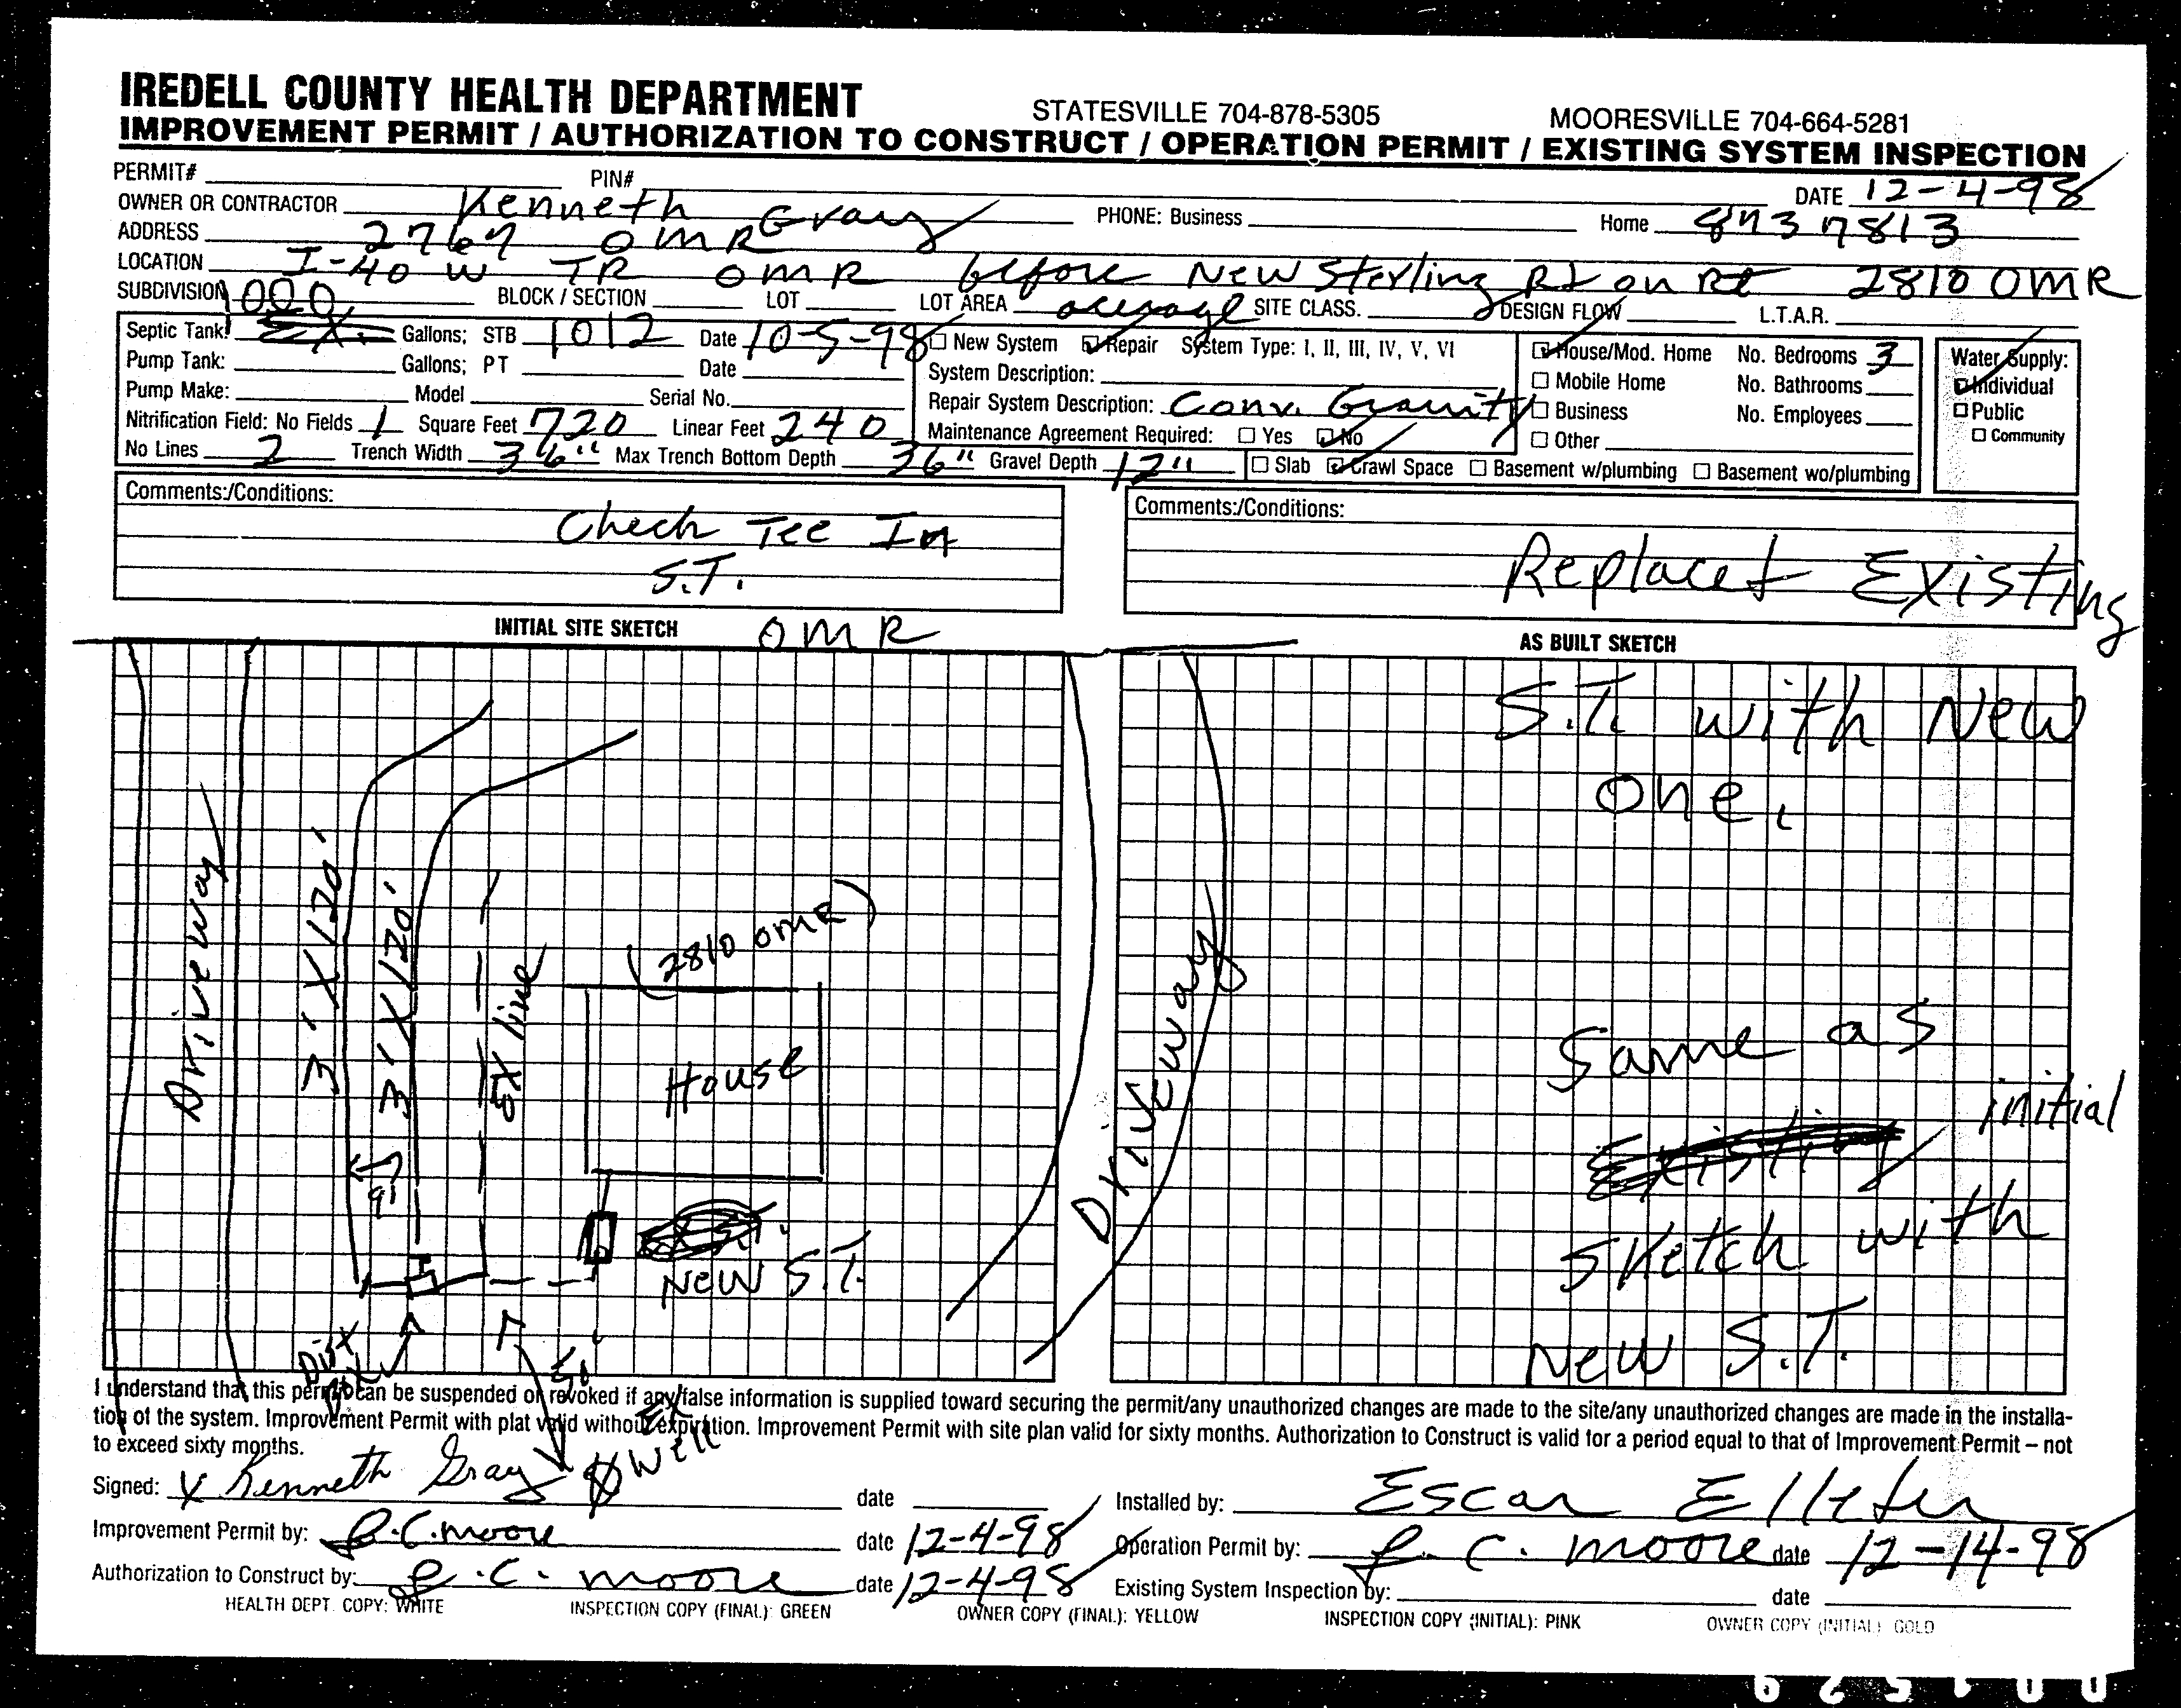 IREDELL COUNTY HEALTH DEPARTMENT STATESVILLE 704-878-5305 MOORESVILLE 704-664-5281
IMPROVEMENT PERMIT / AUTHORIZATION TO CONSTRUCT / OPERATION PERMIT / EXISTING SYSTEM INSPECTION
PERMIT# PIN# DATE 12-4-98
OWNER OR CONTRACTOR Kenneth Gray PHONE: Business Home 8737813
ADDRESS 2767 OMR
LOCATION I-40 W TR OMR before New Sterling Rd on Rt 2810 OMR
SUBDIVISION BLOCK / SECTION LOT LOT AREA acerage SITE CLASS. DESIGN FLOW L.T.A.R.
Septic Tank: 1000 Ex. Gallons; STB 1012 Date 10-5-98 New System Repair System Type: I, II, III, IV, V, VI House/Mod. Home No. Bedrooms 3 Water Supply:
Pump Tank: Gallons; PT Date System Description: Mobile Home No. Bathrooms Individual
Pump Make: Model Serial No. Repair System Description: Conv. Gravity Business No. Employees Public
Nitrification Field: No Fields 1 Square Feet 720 Linear Feet 240 Maintenance Agreement Required: Yes No Other Community
No Lines 2 Trench Width 36" Max Trench Bottom Depth 36" Gravel Depth 12" Slab Crawl Space Basement w/plumbing Basement wo/plumbing
Comments:/Conditions: Comments:/Conditions:
Chech Tee In
S.T.
Replacet Existing
INITIAL SITE SKETCH OMR AS BUILT SKETCH
S.T. with New
one.
Driveway
3' X 120'
3' X 120'
EX line
(2810 OMR)
House
9'
New S.T.
Dist
Box
50'
Ex
Well
Driveway
Same as
initial
Existing
sketch with
New S.T.
I understand that this permit can be suspended or revoked if any false information is supplied toward securing the permit/any unauthorized changes are made to the site/any unauthorized changes are made in the installa-
tion of the system. Improvement Permit with plat valid without expiration. Improvement Permit with site plan valid for sixty months. Authorization to Construct is valid for a period equal to that of Improvement Permit – not
to exceed sixty months.
Signed: X Kenneth Gray date Installed by: Escar
Improvement Permit by: R.C. Moore date 12-4-98 Operation Permit by: R. C. Moore date 12-14-98
Authorization to Construct by: R.C. Moore date 12-4-98 Existing System Inspection by: date
HEALTH DEPT. COPY: WHITE INSPECTION COPY (FINAL): GREEN OWNER COPY (FINAL): YELLOW INSPECTION COPY (INITIAL): PINK OWNER COPY (INITIAL): GOLD